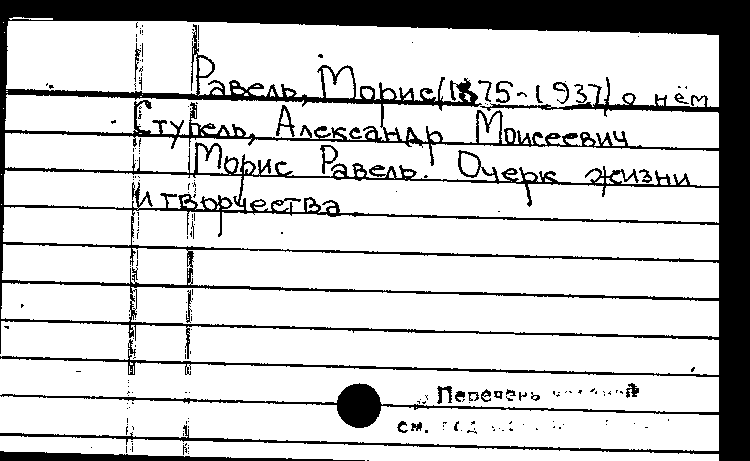 Равель, Морис (1875-1937) о нём
Ступель, Александр Моисеевич
Морис Равель. Очерк жизни
и творчества.
Перечень
см. под